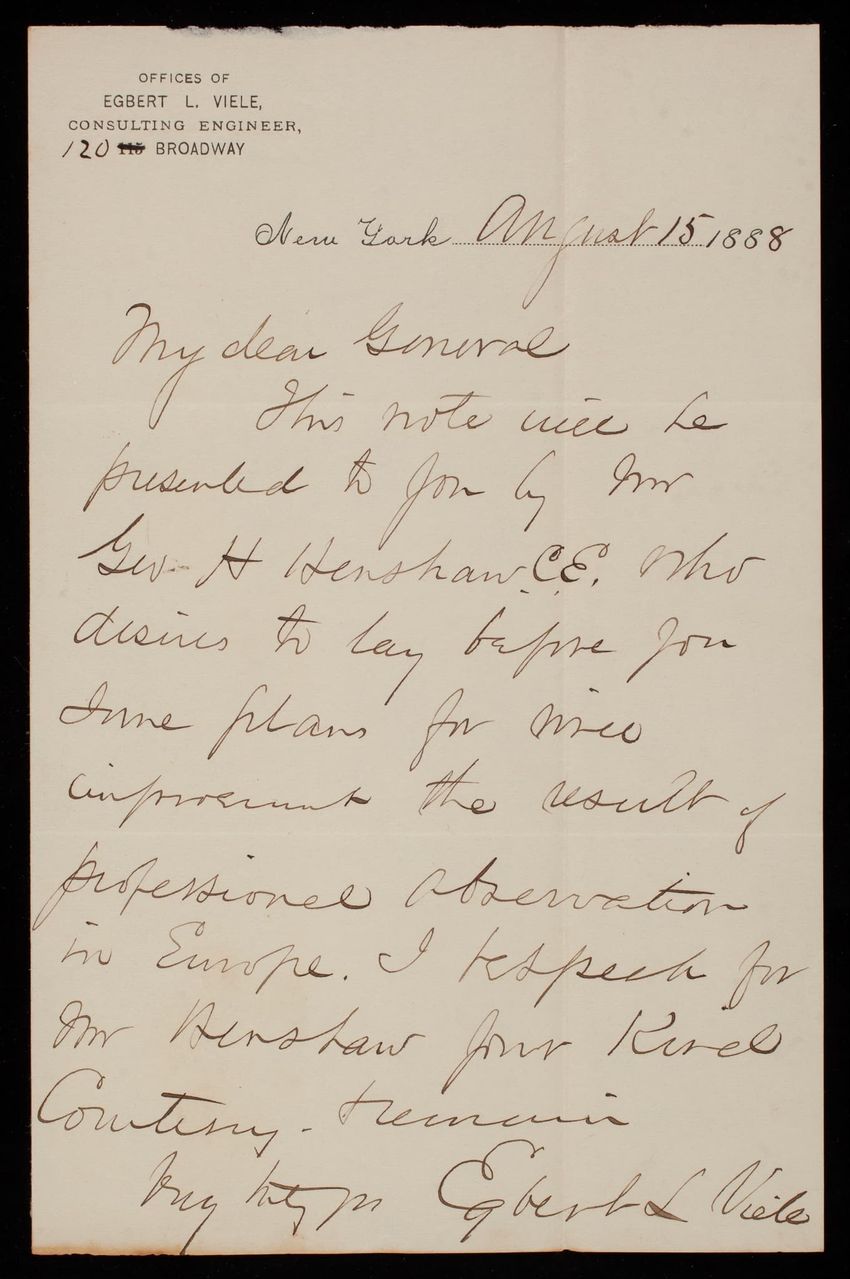 OFFICES OF
EGBERT L. VIELE,
CONSULTING ENGINEER,
120 115 BROADWAY
New York August 15 1888
My dear General
This note will be
presented to you by Mr
Geo H Henshaw C.E. who
desires to lay before you
some plans for river
improvement the result of
professional observation
in Europe. I bespeak for
Mr Henshaw your Kind
Courtesy - & remain
Very truly yrs Egbert L Viele